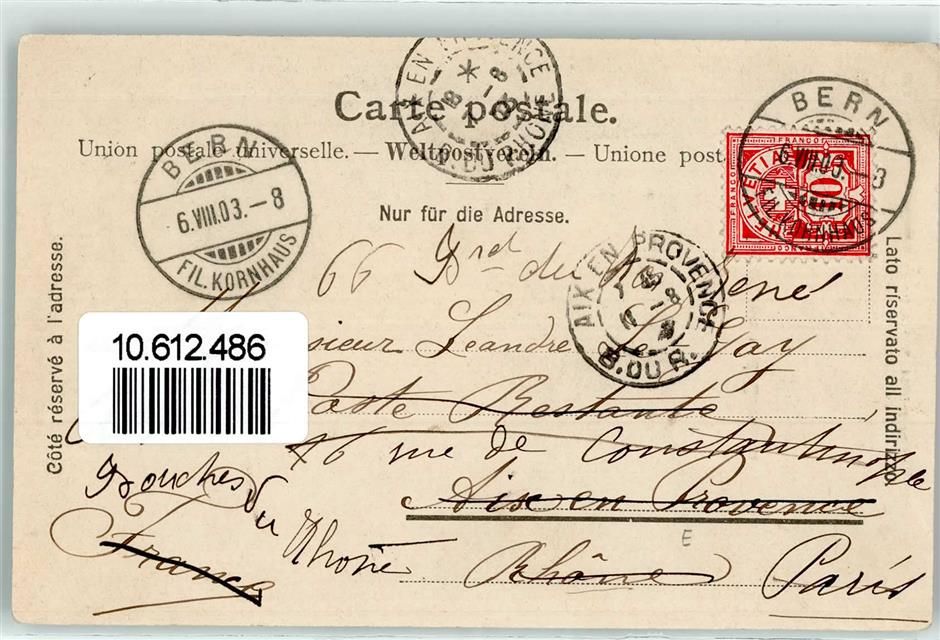 Carte postale.
Union postale universelle. — Weltpostverein. — Unione post
Nur für die Adresse.
Côté réservé à l'adresse.
Lato riservato all indirizzo
BERN
6.VIII.03.–8
FIL. KORNHAUS
BERN
6.VIII.03.–8
FIL. KORNHAUS
AIX EN PROVENCE
B. DU RHONE
AIX EN PROVENCE
B. DU R.
FRANCO
HELVETIA
10
10.612.486
66 Brd du
sieur Leandre Le Gay
Poste Restante
46 rue de Constantinople
Aix en Provence
Bouches du Rhône
Rhône
Paris
France
E